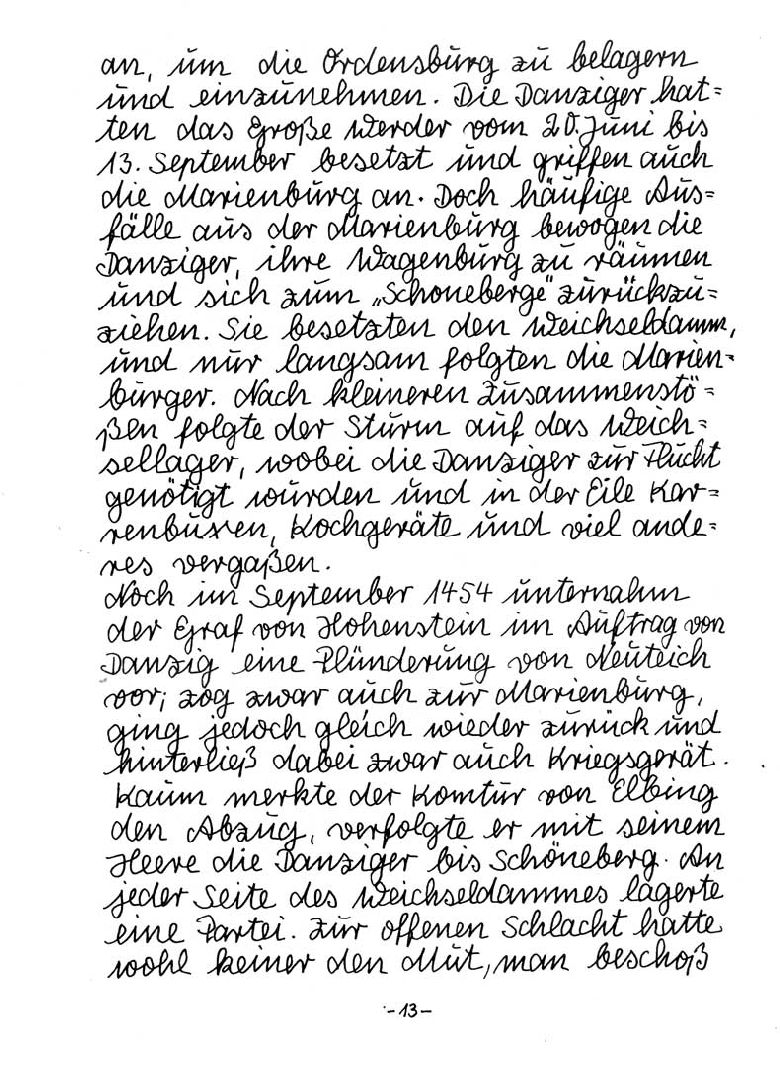 an, um die Ordensburg zu belagern
und einzunehmen. Die Danziger hat=
ten das Große Werder vom 20. Juni bis
13. September besetzt und griffen auch
die Marienburg an. Doch häufige Aus=
fälle aus der Marienburg bewogen die
Danziger, ihre Wagenburg zu räumen
und sich zum „Schoneberge" zurückzu=
ziehen. Sie besetzten den Weichseldamm,
und nur langsam folgten die Marien=
burger. Nach kleineren Zusammenstö=
ßen folgte der Sturm auf das Weich=
sellager, wobei die Danziger zur Flucht
genötigt wurden und in der Eile Kar=
renbuxen, Kochgeräte und viel ande=
res vergaßen.
Noch im September 1454 unternahm
der Graf von Hohenstein im Auftrag von
Danzig eine Plünderung von Neuteich
vor; zog zwar auch zur Marienburg,
ging jedoch gleich wieder zurück und
hinterließ dabei zwar auch Kriegsgerät.
Kaum merkte der Komtur von Elbing
den Abzug, verfolgte er mit seinem
Heere die Danziger bis Schöneberg. An
jeder Seite des Weichseldammes lagerte
eine Partei. Zur offenen Schlacht hatte
wohl keiner den Mut, man beschoß
-13-